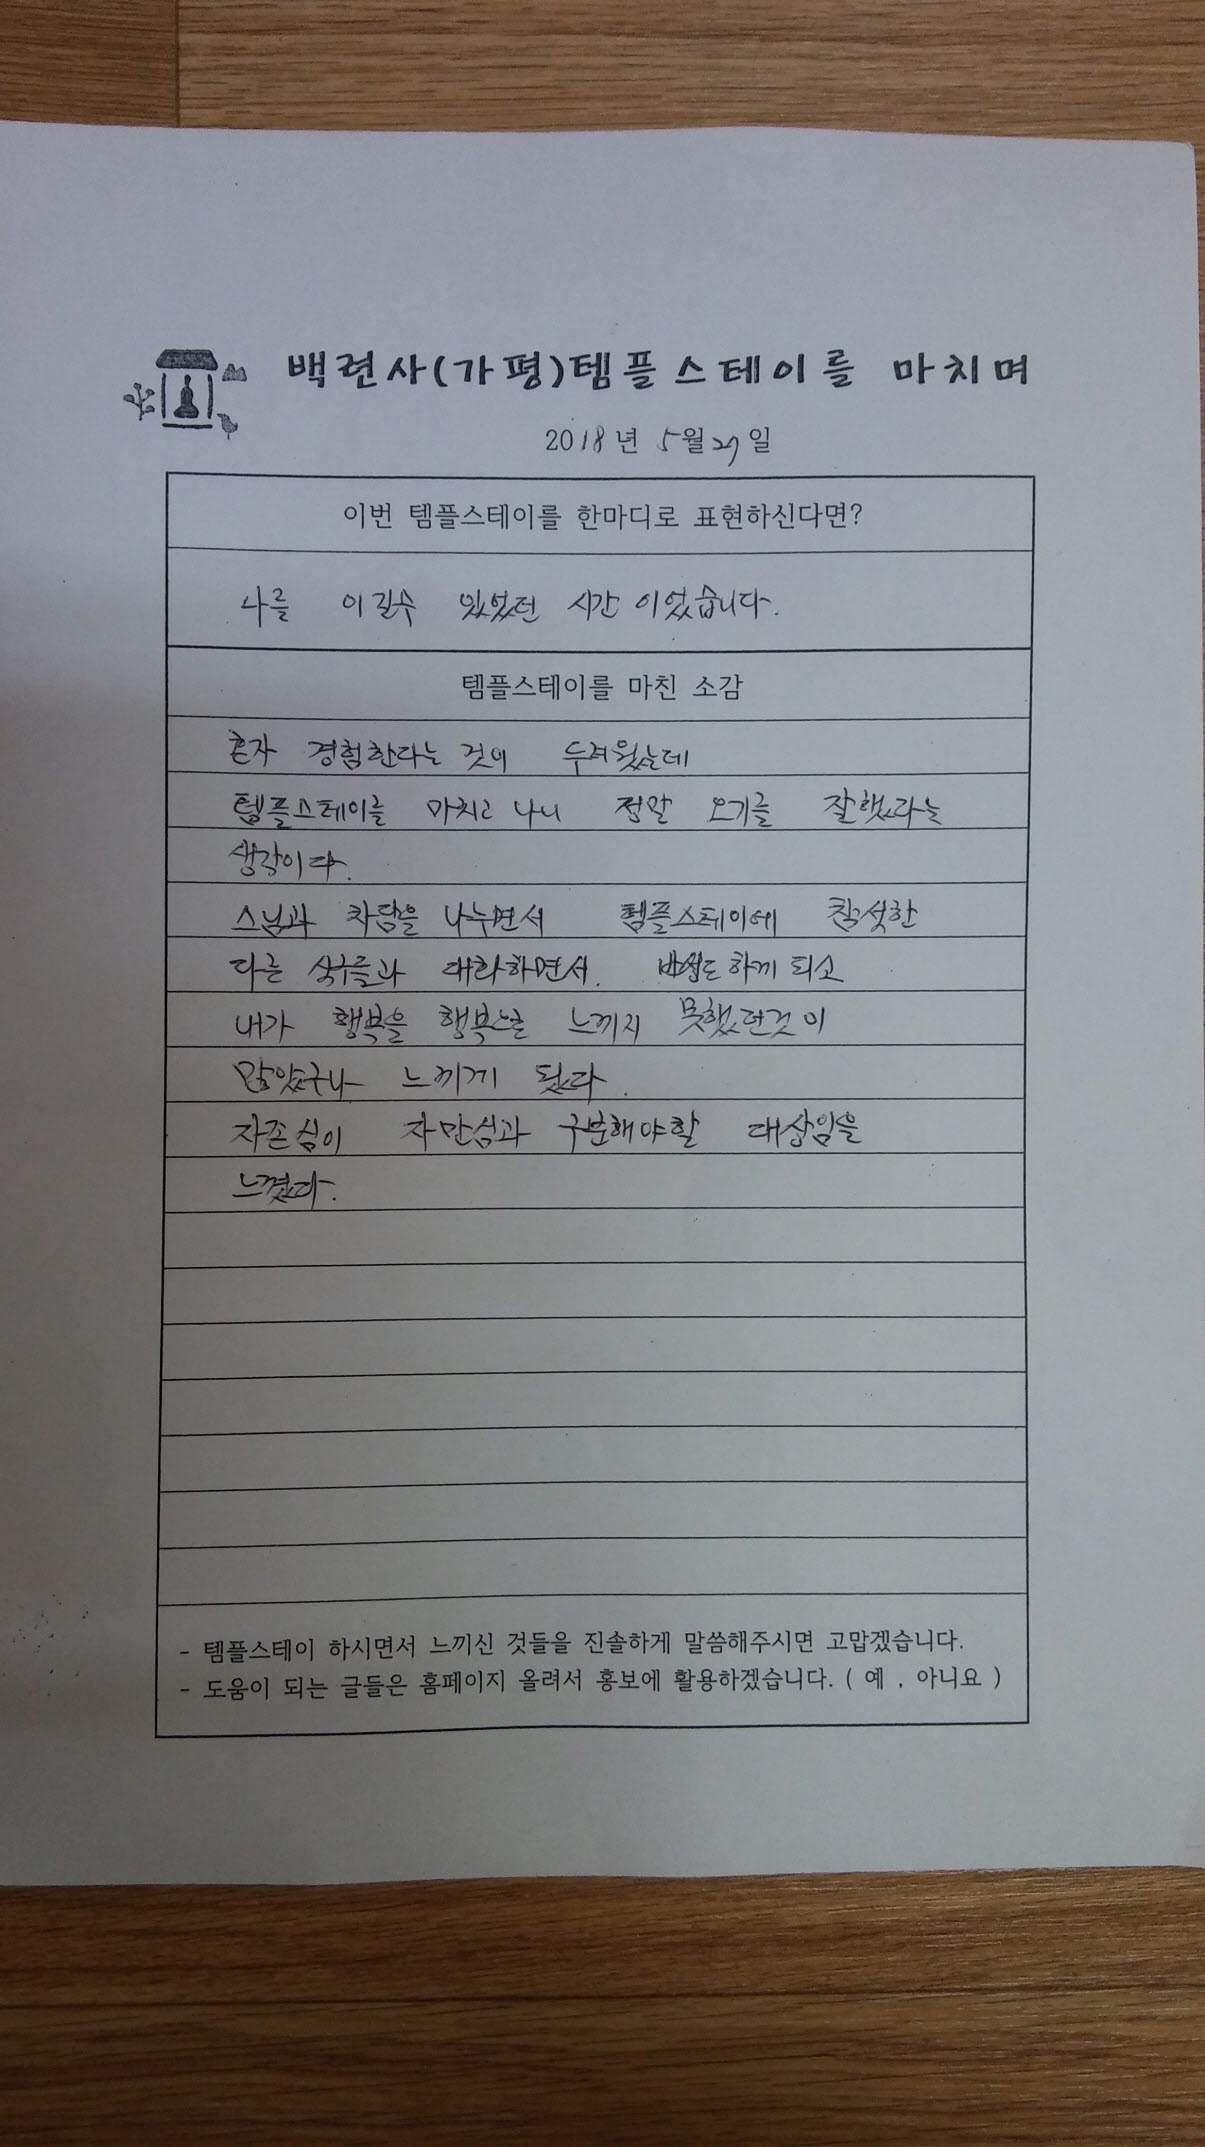 백련사(가평)템플스테이를 마치며
2018년 5월 27일
이번 템플스테이를 한마디로 표현하신다면?
나를 이길수 있었던 시간 이었습니다.
템플스테이를 마친 소감
혼자 경험한다는 것이 두려웠는데
템플스테이를 마치고 나니 정말 오기를 잘했다는
생각이다.
스님과 차담을 나누면서 템플스테이에 참석한
다른 식구들과 대화하면서. 반성도 하게 되고
내가 행복을 행복으로 느끼지 못했던것이
많았구나 느끼게 됬다.
자존심이 자만심과 구분해야할 대상임을
느꼈다.
- 템플스테이 하시면서 느끼신 것들을 진솔하게 말씀해주시면 고맙겠습니다.
- 도움이 되는 글들은 홈페이지 올려서 홍보에 활용하겠습니다. ( 예 , 아니요 )